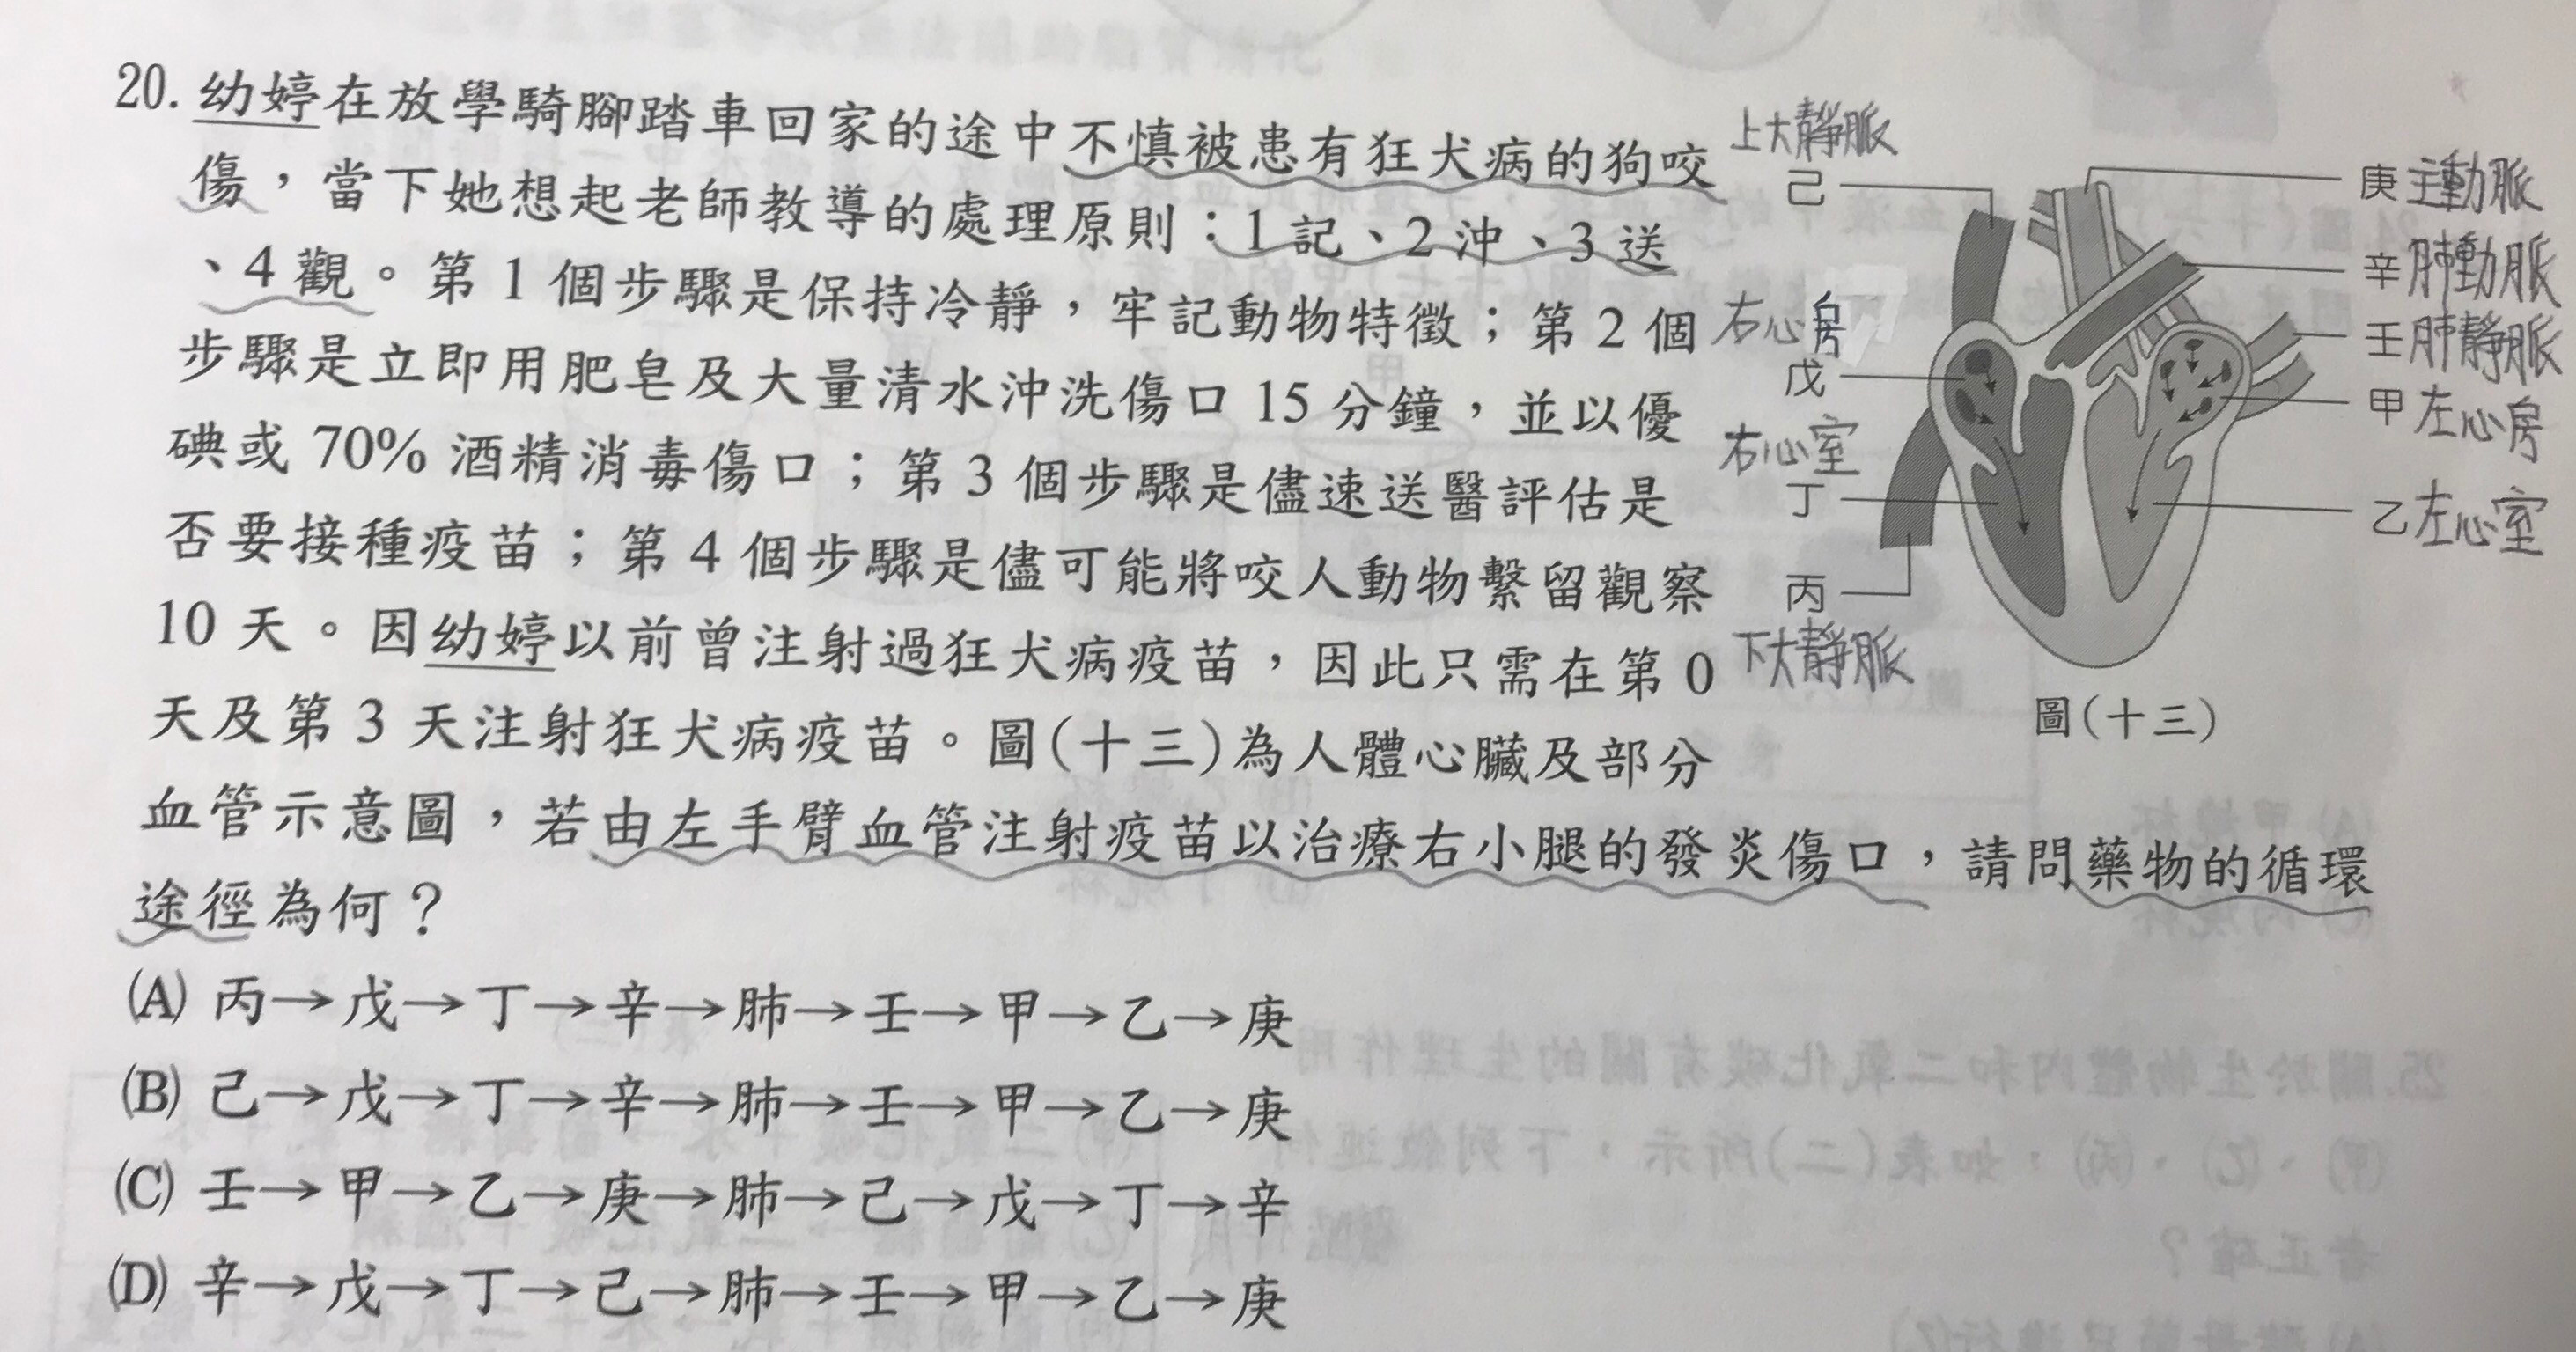 20. 幼婷在放學騎腳踏車回家的途中不慎被患有狂犬病的狗咬
傷，當下她想起老師教導的處理原則：1 記、2 沖、3 送
、4 觀。第 1 個步驟是保持冷靜，牢記動物特徵；第 2 個
步驟是立即用肥皂及大量清水沖洗傷口 15 分鐘，並以優
碘或 70% 酒精消毒傷口；第 3 個步驟是儘速送醫評估是
否要接種疫苗；第 4 個步驟是儘可能將咬人動物繫留觀察
10 天。因幼婷以前曾注射過狂犬病疫苗，因此只需在第 0
天及第 3 天注射狂犬病疫苗。圖(十三)為人體心臟及部分
血管示意圖，若由左手臂血管注射疫苗以治療右小腿的發炎傷口，請問藥物的循環
途徑為何？
(A) 丙→戊→丁→辛→肺→壬→甲→乙→庚
(B) 己→戊→丁→辛→肺→壬→甲→乙→庚
(C) 壬→甲→乙→庚→肺→己→戊→丁→辛
(D) 辛→戊→丁→己→肺→壬→甲→乙→庚
上大靜脈
己
右心房
戊
右心室
丁
丙
下大靜脈
庚 主動脈
辛 肺動脈
壬 肺靜脈
甲 左心房
乙 左心室
圖(十三)